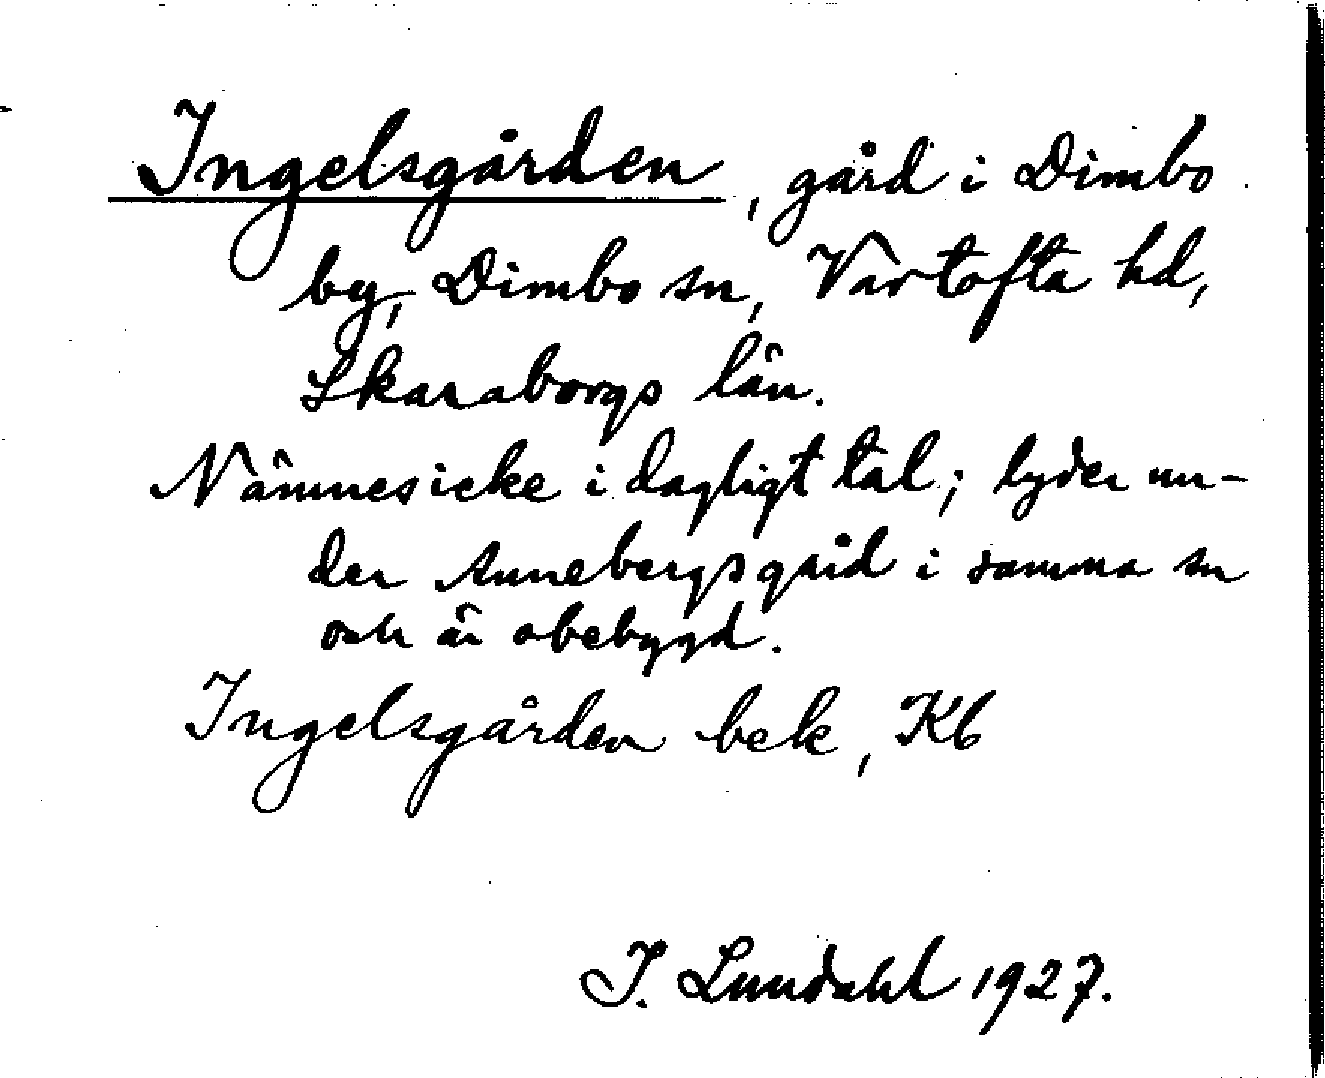 Ingelsgården, gård i Dimbo
by, Dimbo sn, Vartofta hd,
Skaraborgs län.
Nämnes icke i dagligt tal; lyder un-
der Annebergs gård i samma sn
och är obebygd.
Ingelsgården bek, Kb
I. Lundahl 1927.